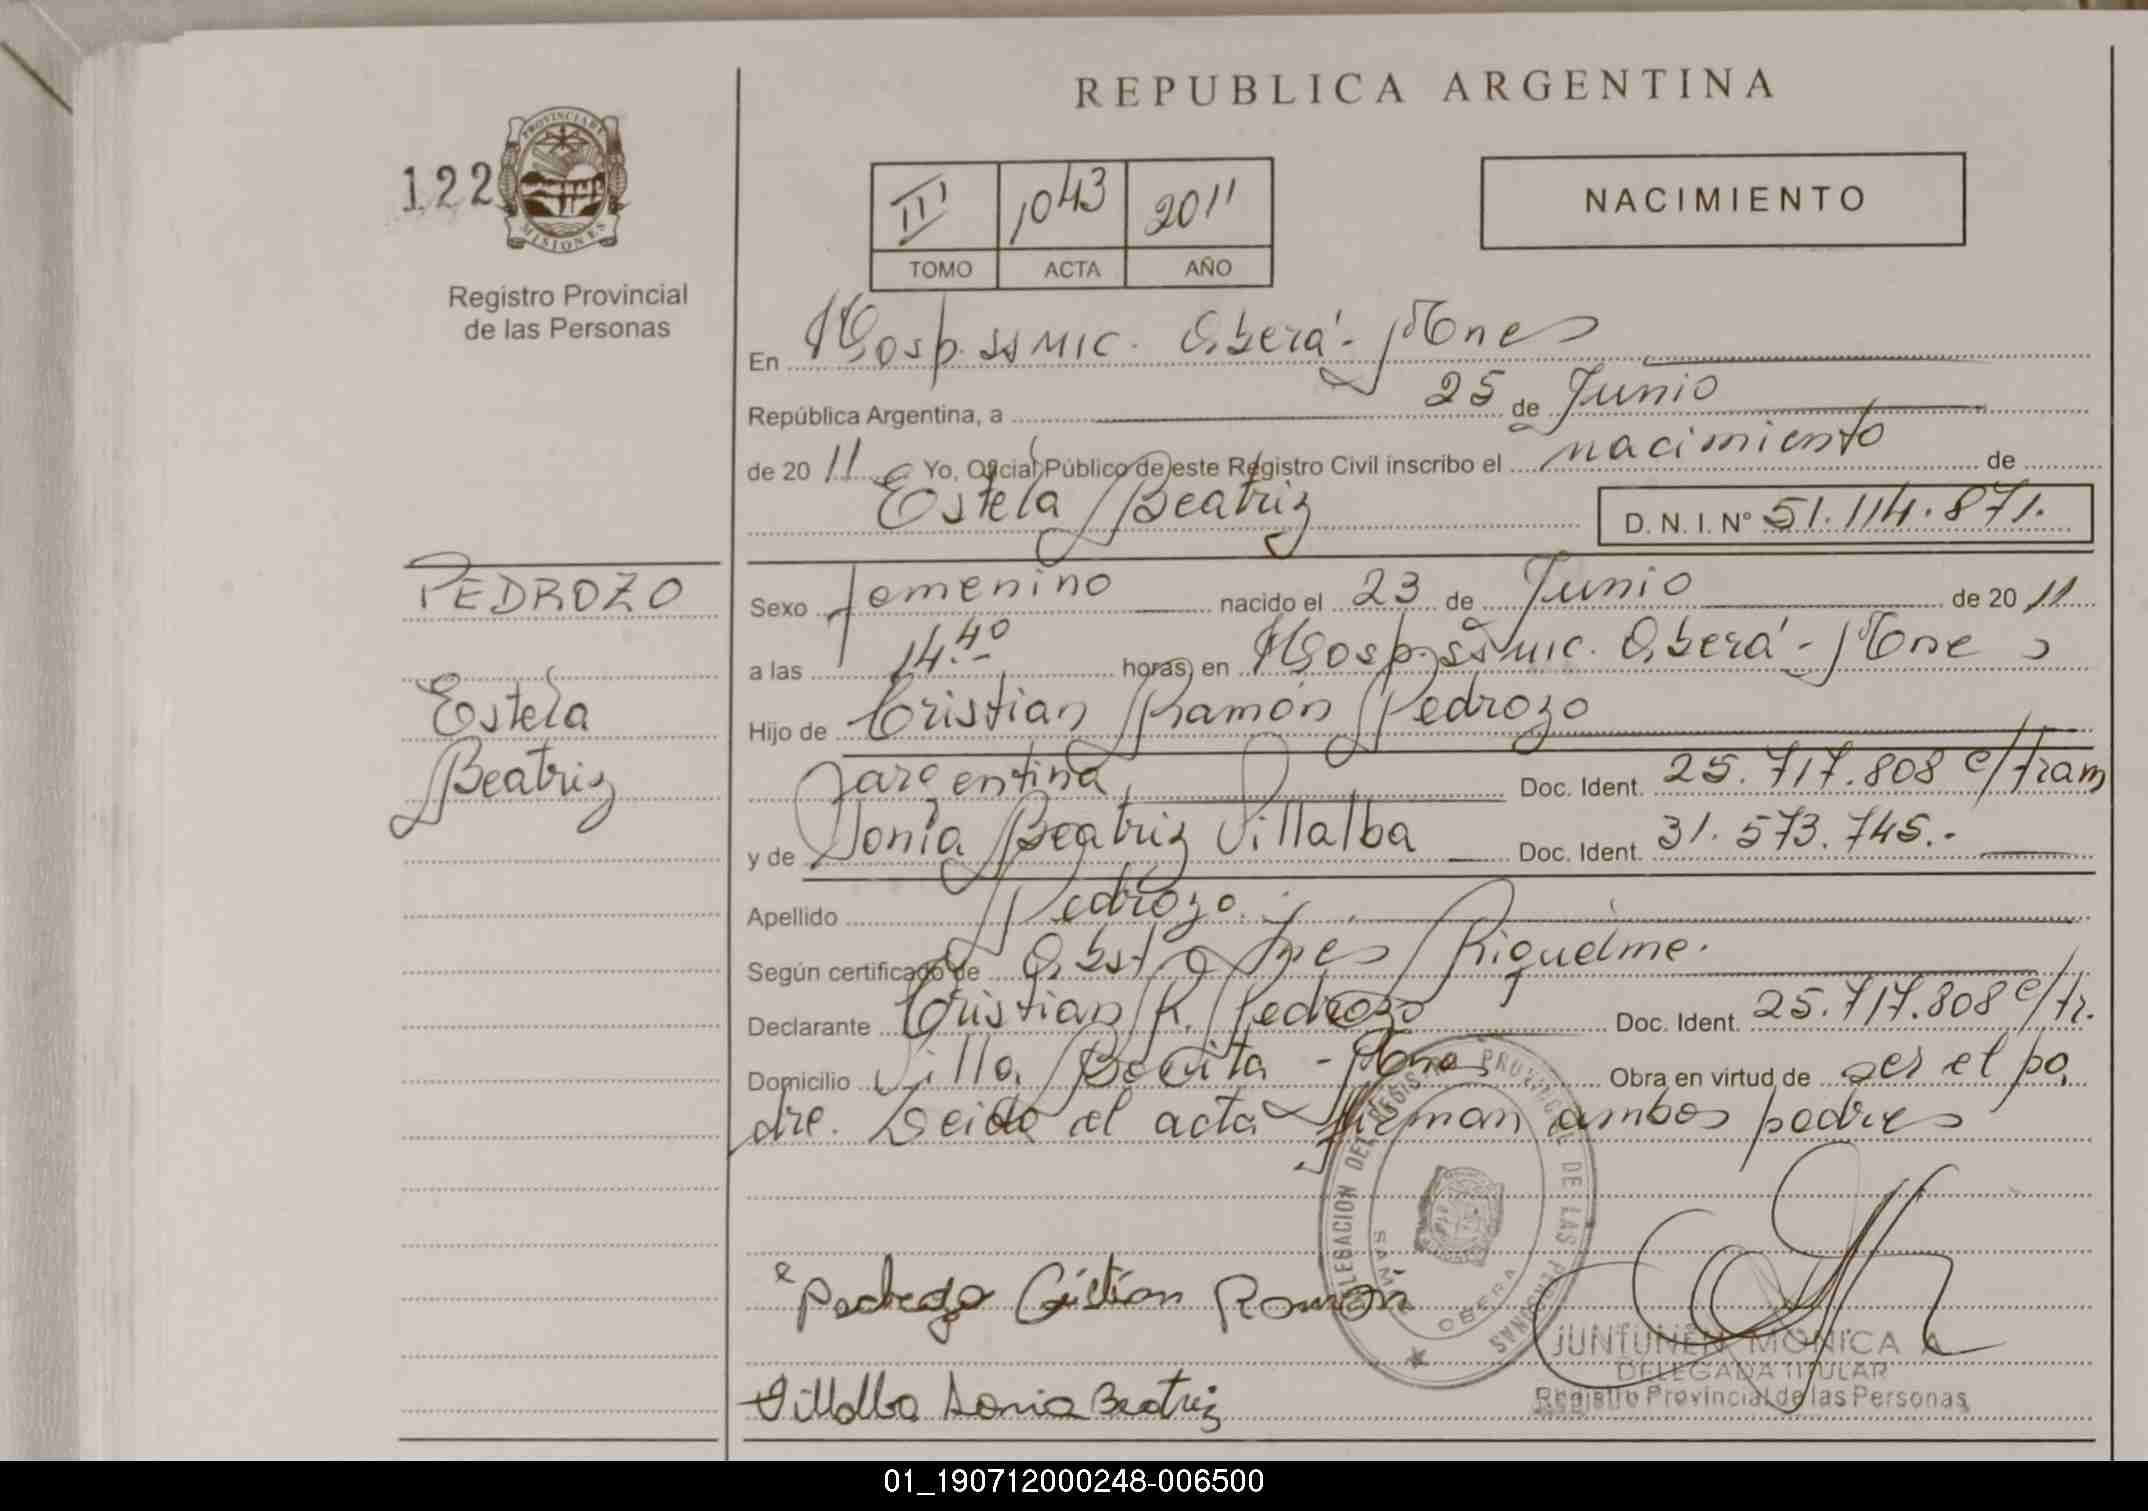 REPUBLICA ARGENTINA
122
PROVINCIA DE MISIONES
Registro Provincial
de las Personas
III 1043 2011
TOMO ACTA AÑO
NACIMIENTO
En Hosp. SSMIC. Oberá - Mnes
República Argentina, a 25 de Junio
de 2011 Yo, Oficial Público de este Registro Civil inscribo el nacimiento de
Estela Beatriz D. N. I. Nº 51.114.871.
PEDROZO
Estela
Beatriz
Sexo femenino nacido el 23 de Junio de 2011
a las 14.40 horas, en Hosp. SSMIC. Oberá - Mnes
Hijo de Cristian Ramón Pedrozo
argentina Doc. Ident. 25.717.808 e/tram
y de Sonia Beatriz Villalba Doc. Ident. 31.573.745.-
Apellido Pedrozo.
Según certificado de Obst. Ines Riquelme.
Declarante Cristian R. Pedrozo Doc. Ident. 25.717.808 e/tr.
Domicilio Villa Bonita - Mnes Obra en virtud de ser el pa
dre. Leida el acta firman ambos padres
DELEGACION DEL REGISTRO PROVINCIAL DE LAS PERSONAS
OBERA
Pedrozo Cristian Ramón
Villalba Sonia Beatriz
JUNTUNEN MONICA A
DELEGADA TITULAR
Registro Provincial de las Personas
01_190712000248-006500